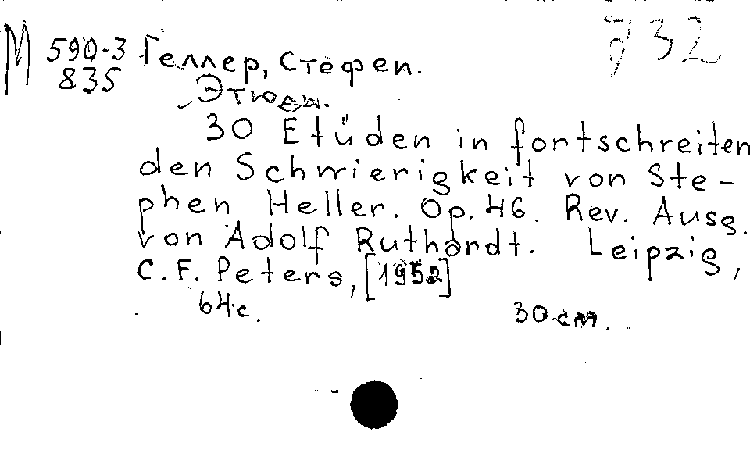 М 590-3 Геллер, Стефен. 732
835
Этюды.
30 Etüden in fortschreiten
den Schwierigkeit von Ste-
phen Heller. Op. 46. Rev. Ausg.
von Adolf Ruthardt. Leipzig,
C. F. Peters, [1952]
64 с. 30 см.